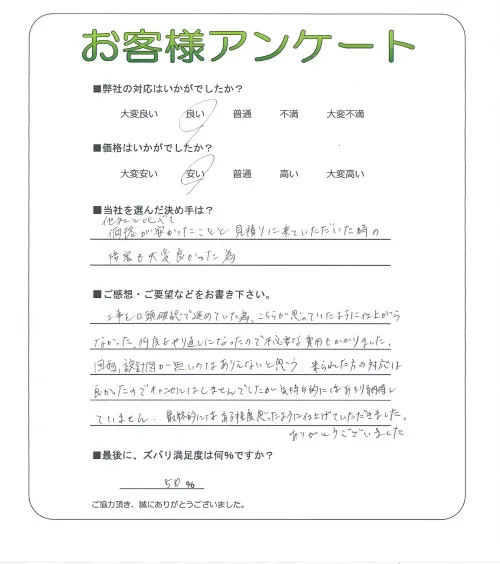 お客様アンケート
■弊社の対応はいかがでしたか？
大変良い 良い 普通 不満 大変不満
■価格はいかがでしたか？
大変安い 安い 普通 高い 大変高い
■当社を選んだ決め手は？
他社と比べて
価格が安かったことと見積りに来ていただいた時の
接客も大変良かった為
■ご感想・ご要望などをお書き下さい。
工事を口頭確認で進めていた為、こちらが思っていたように仕上がら
なかった。何度もやり直しになったので不必要な費用もかかりました。
図面、設計図が無いのはありえないと思う。来られた方の対応は
良かったので にはしませんでしたが気持ち的にはあまり納得し
ていません。最終的にはある程度思ったように仕上げていただきました。
ありがとうございました。
■最後に、ズバリ満足度は何％ですか？
50 %
ご協力頂き、誠にありがとうございました。